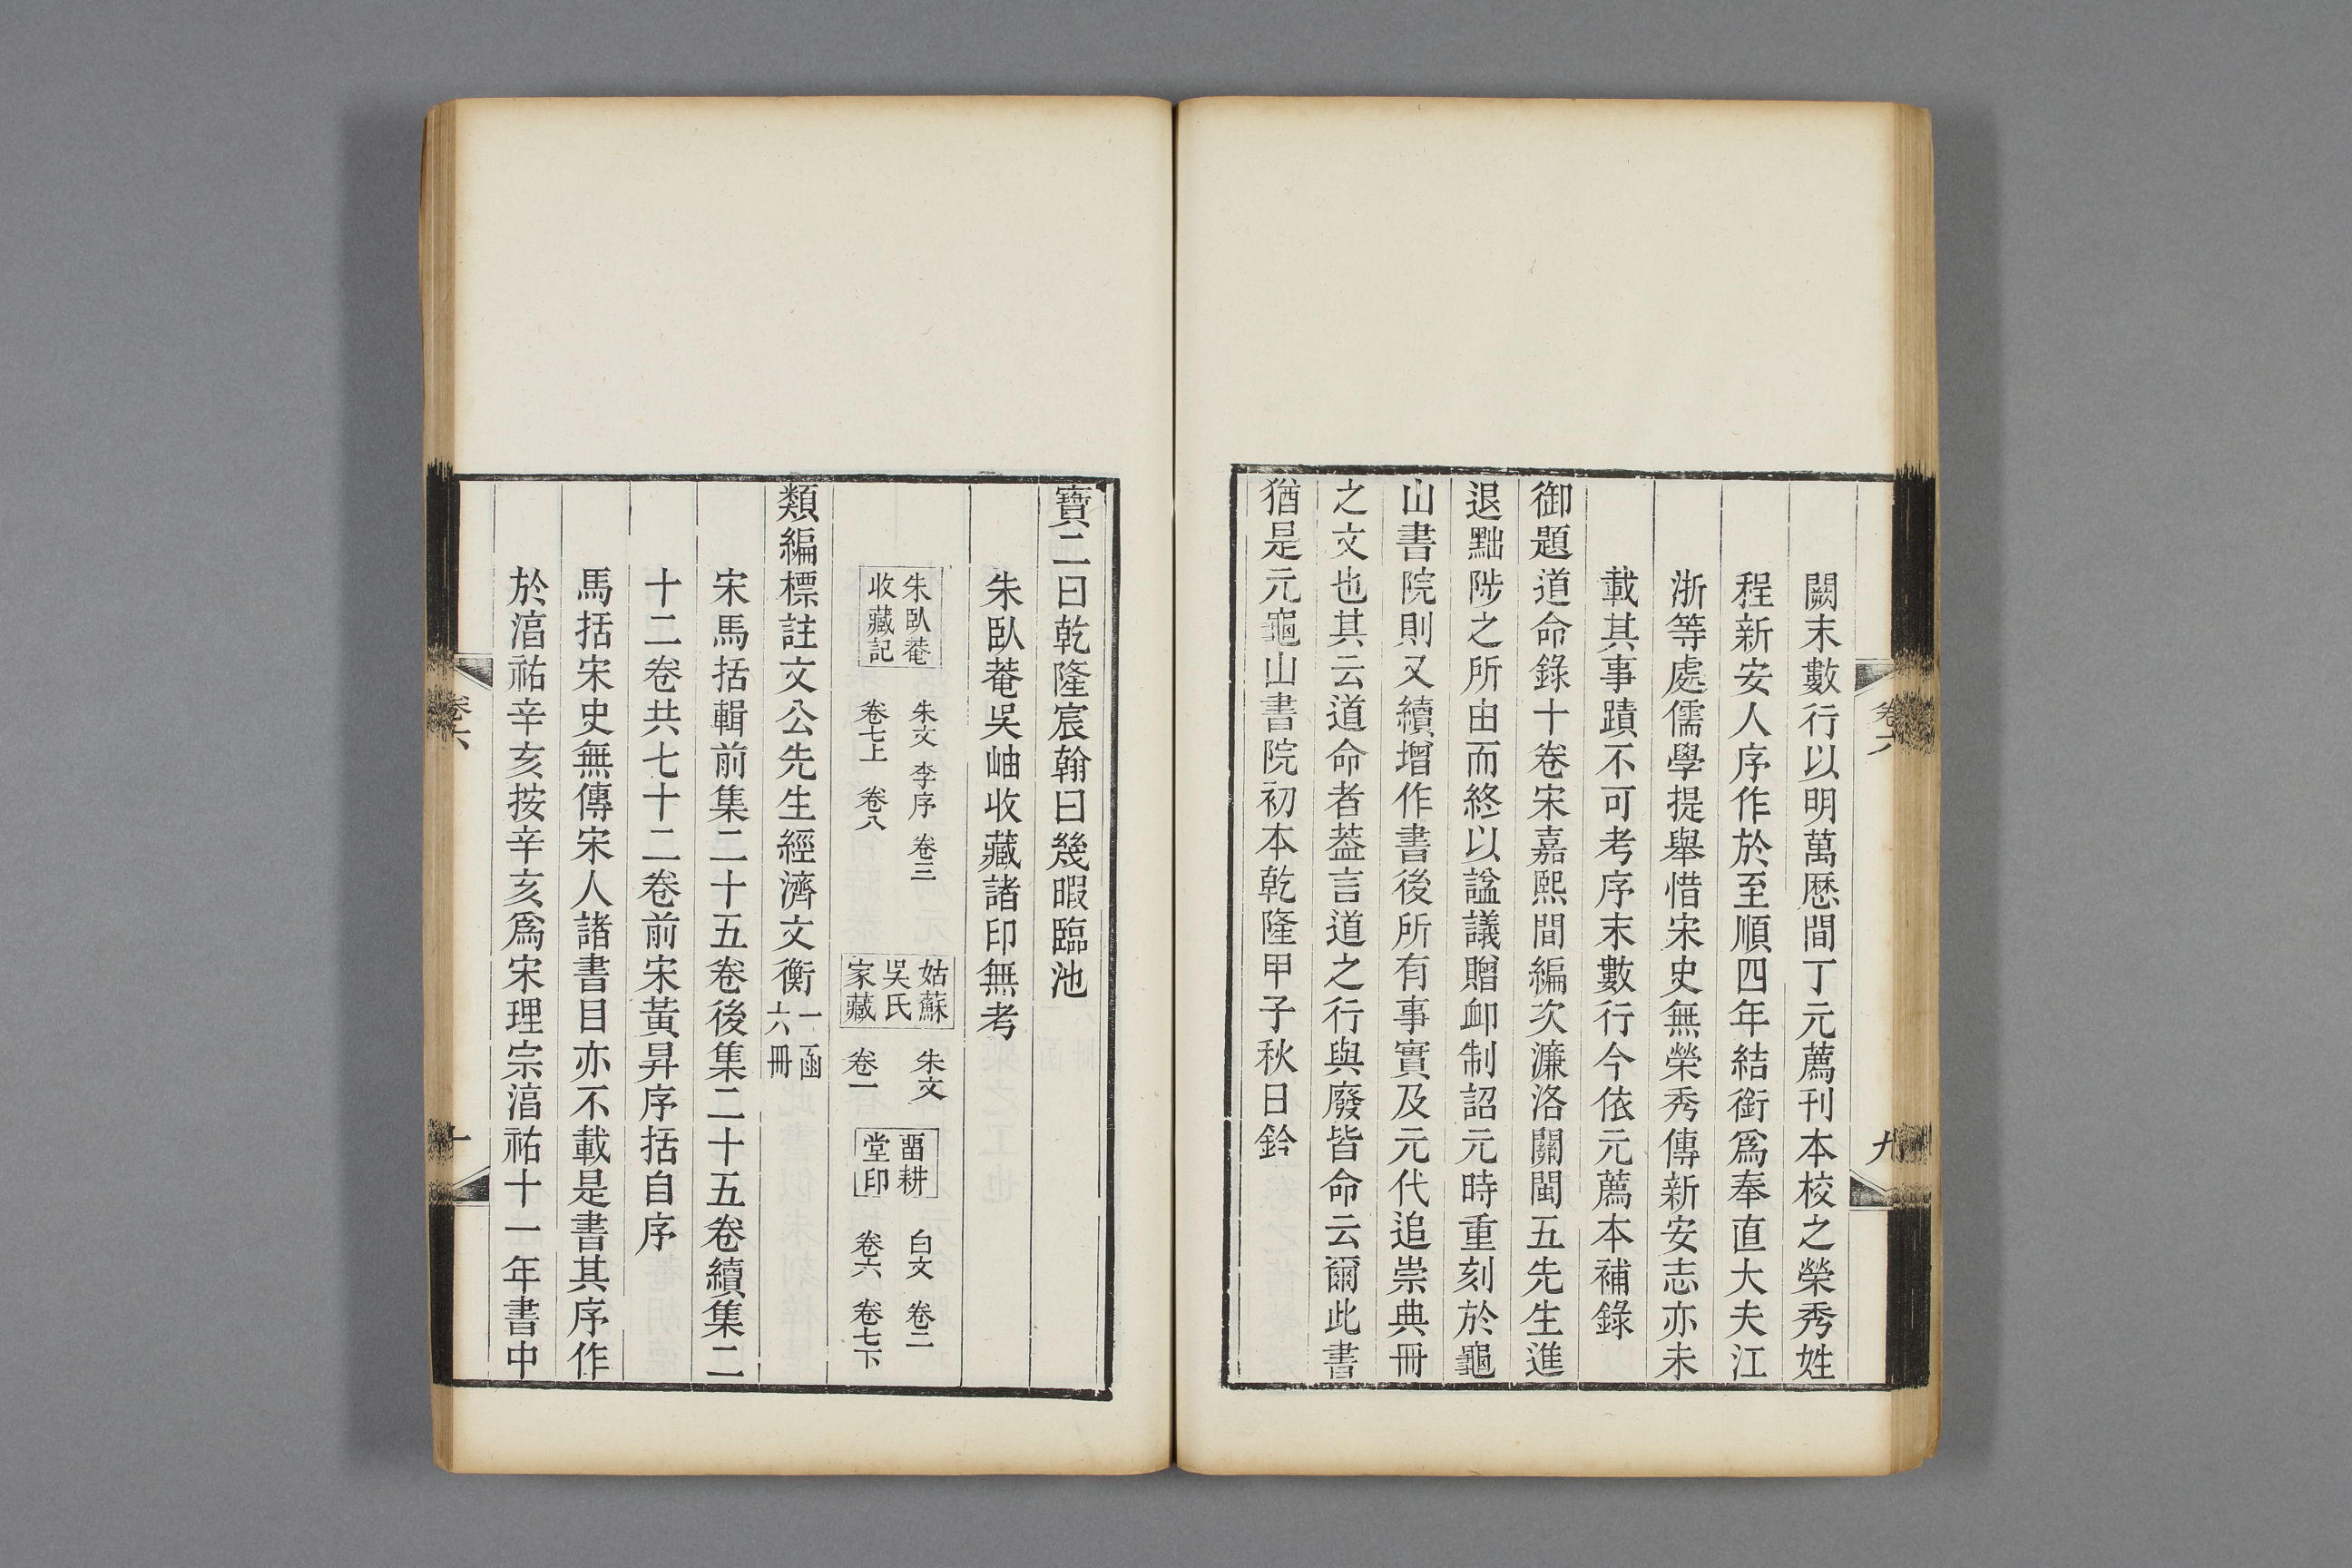 闕末數行以明萬厯間丁元薦刊本校之榮秀姓
程新安人序作於至順四年結銜爲奉直大夫江
浙等處儒學提舉惜宋史無榮秀傳新安志亦未
載其事蹟不可考序末數行今依元薦本補錄
御題道命錄十卷宋嘉熙間編次濂洛關閩五先生進
退黜陟之所由而終以諡議贈卹制詔元時重刻於龜
山書院則又續增作書後所有事實及元代追崇典冊
之文也其云道命者葢言道之行與廢皆命云爾此書
猶是元龜山書院初本乾隆甲子秋日鈐
寶二曰乾隆宸翰曰幾暇臨池
朱臥菴吳岫收藏諸印無考
朱臥菴
收藏記
朱文 李序 卷三
卷七上 卷八
姑蘇
吳氏
家藏
朱文
卷一
畱耕
堂印
白文 卷二
卷六 卷七下
類編標註文公先生經濟文衡
一函
六冊
宋馬括輯前集二十五卷後集二十五卷續集二
十二卷共七十二卷前宋黃昇序括自序
馬括宋史無傳宋人諸書目亦不載是書其序作
於湻祐辛亥按辛亥爲宋理宗湻祐十一年書中
卷六
九
卷六
十